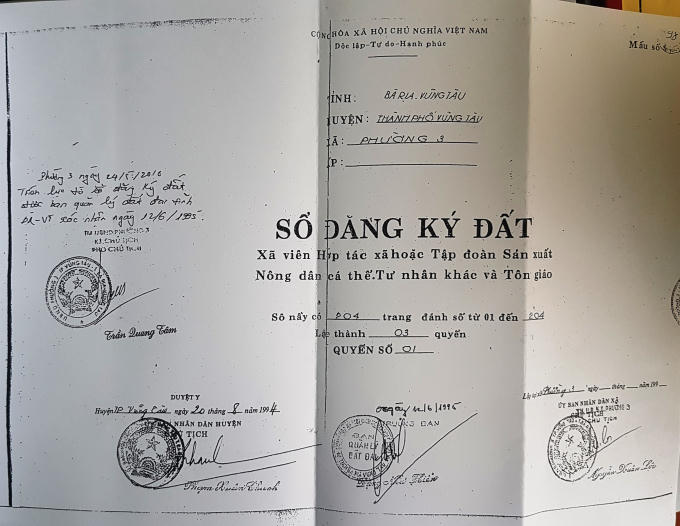 CỘNG HÒA XÃ HỘI CHỦ NGHĨA VIỆT NAM
Độc lập-Tự do-Hạnh phúc
Mẫu số
ỈNH: BÀ RỊA-VŨNG TÀU
HUYỆN: THÀNH PHỐ VŨNG TÀU
XÃ: PHƯỜNG 3
P:
Phường 3 ngày 24/5/2016
Trích lục từ sổ đăng ký đất
được ban quản lý đất đai tỉnh
BR-VT xác nhận ngày 12/6/1995.
TM UBND PHƯỜNG 3
KT. CHỦ TỊCH
PHÓ CHỦ TỊCH
Trần Quang Tâm
SỔ ĐĂNG KÝ ĐẤT
Xã viên Hợp tác xã hoặc Tập đoàn Sản xuất
Nông dân cá thể. Tư nhân khác và Tôn giáo
Sổ nầy có 204 trang đánh số từ 01 đến 204
Lập thành 03 quyển
QUYỂN SỐ 01
DUYỆT Y
Huyện TP Vũng Tàu, ngày 20 tháng 8 năm 1994
NHÂN DÂN HUYỆN
TỊCH
Phạm Xuân
Ngày 12/6/1995
TRƯỞNG BAN
BAN
QUẢN LÝ
ĐẤT ĐAI
Lập tại xã Phường 3 ngày tháng năm 199
ỦY BAN NHÂN DÂN XÃ
CHỦ TỊCH
Nguyễn Xuân